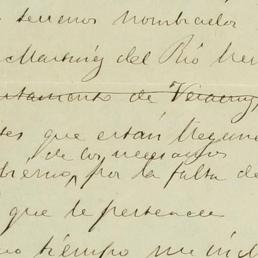 terrenos nombrados
Martinez del Rio Her
rtamento de Veracruz
tes que están
de los negocios
bierno, por la falta de
que le pertenece
tiempo me